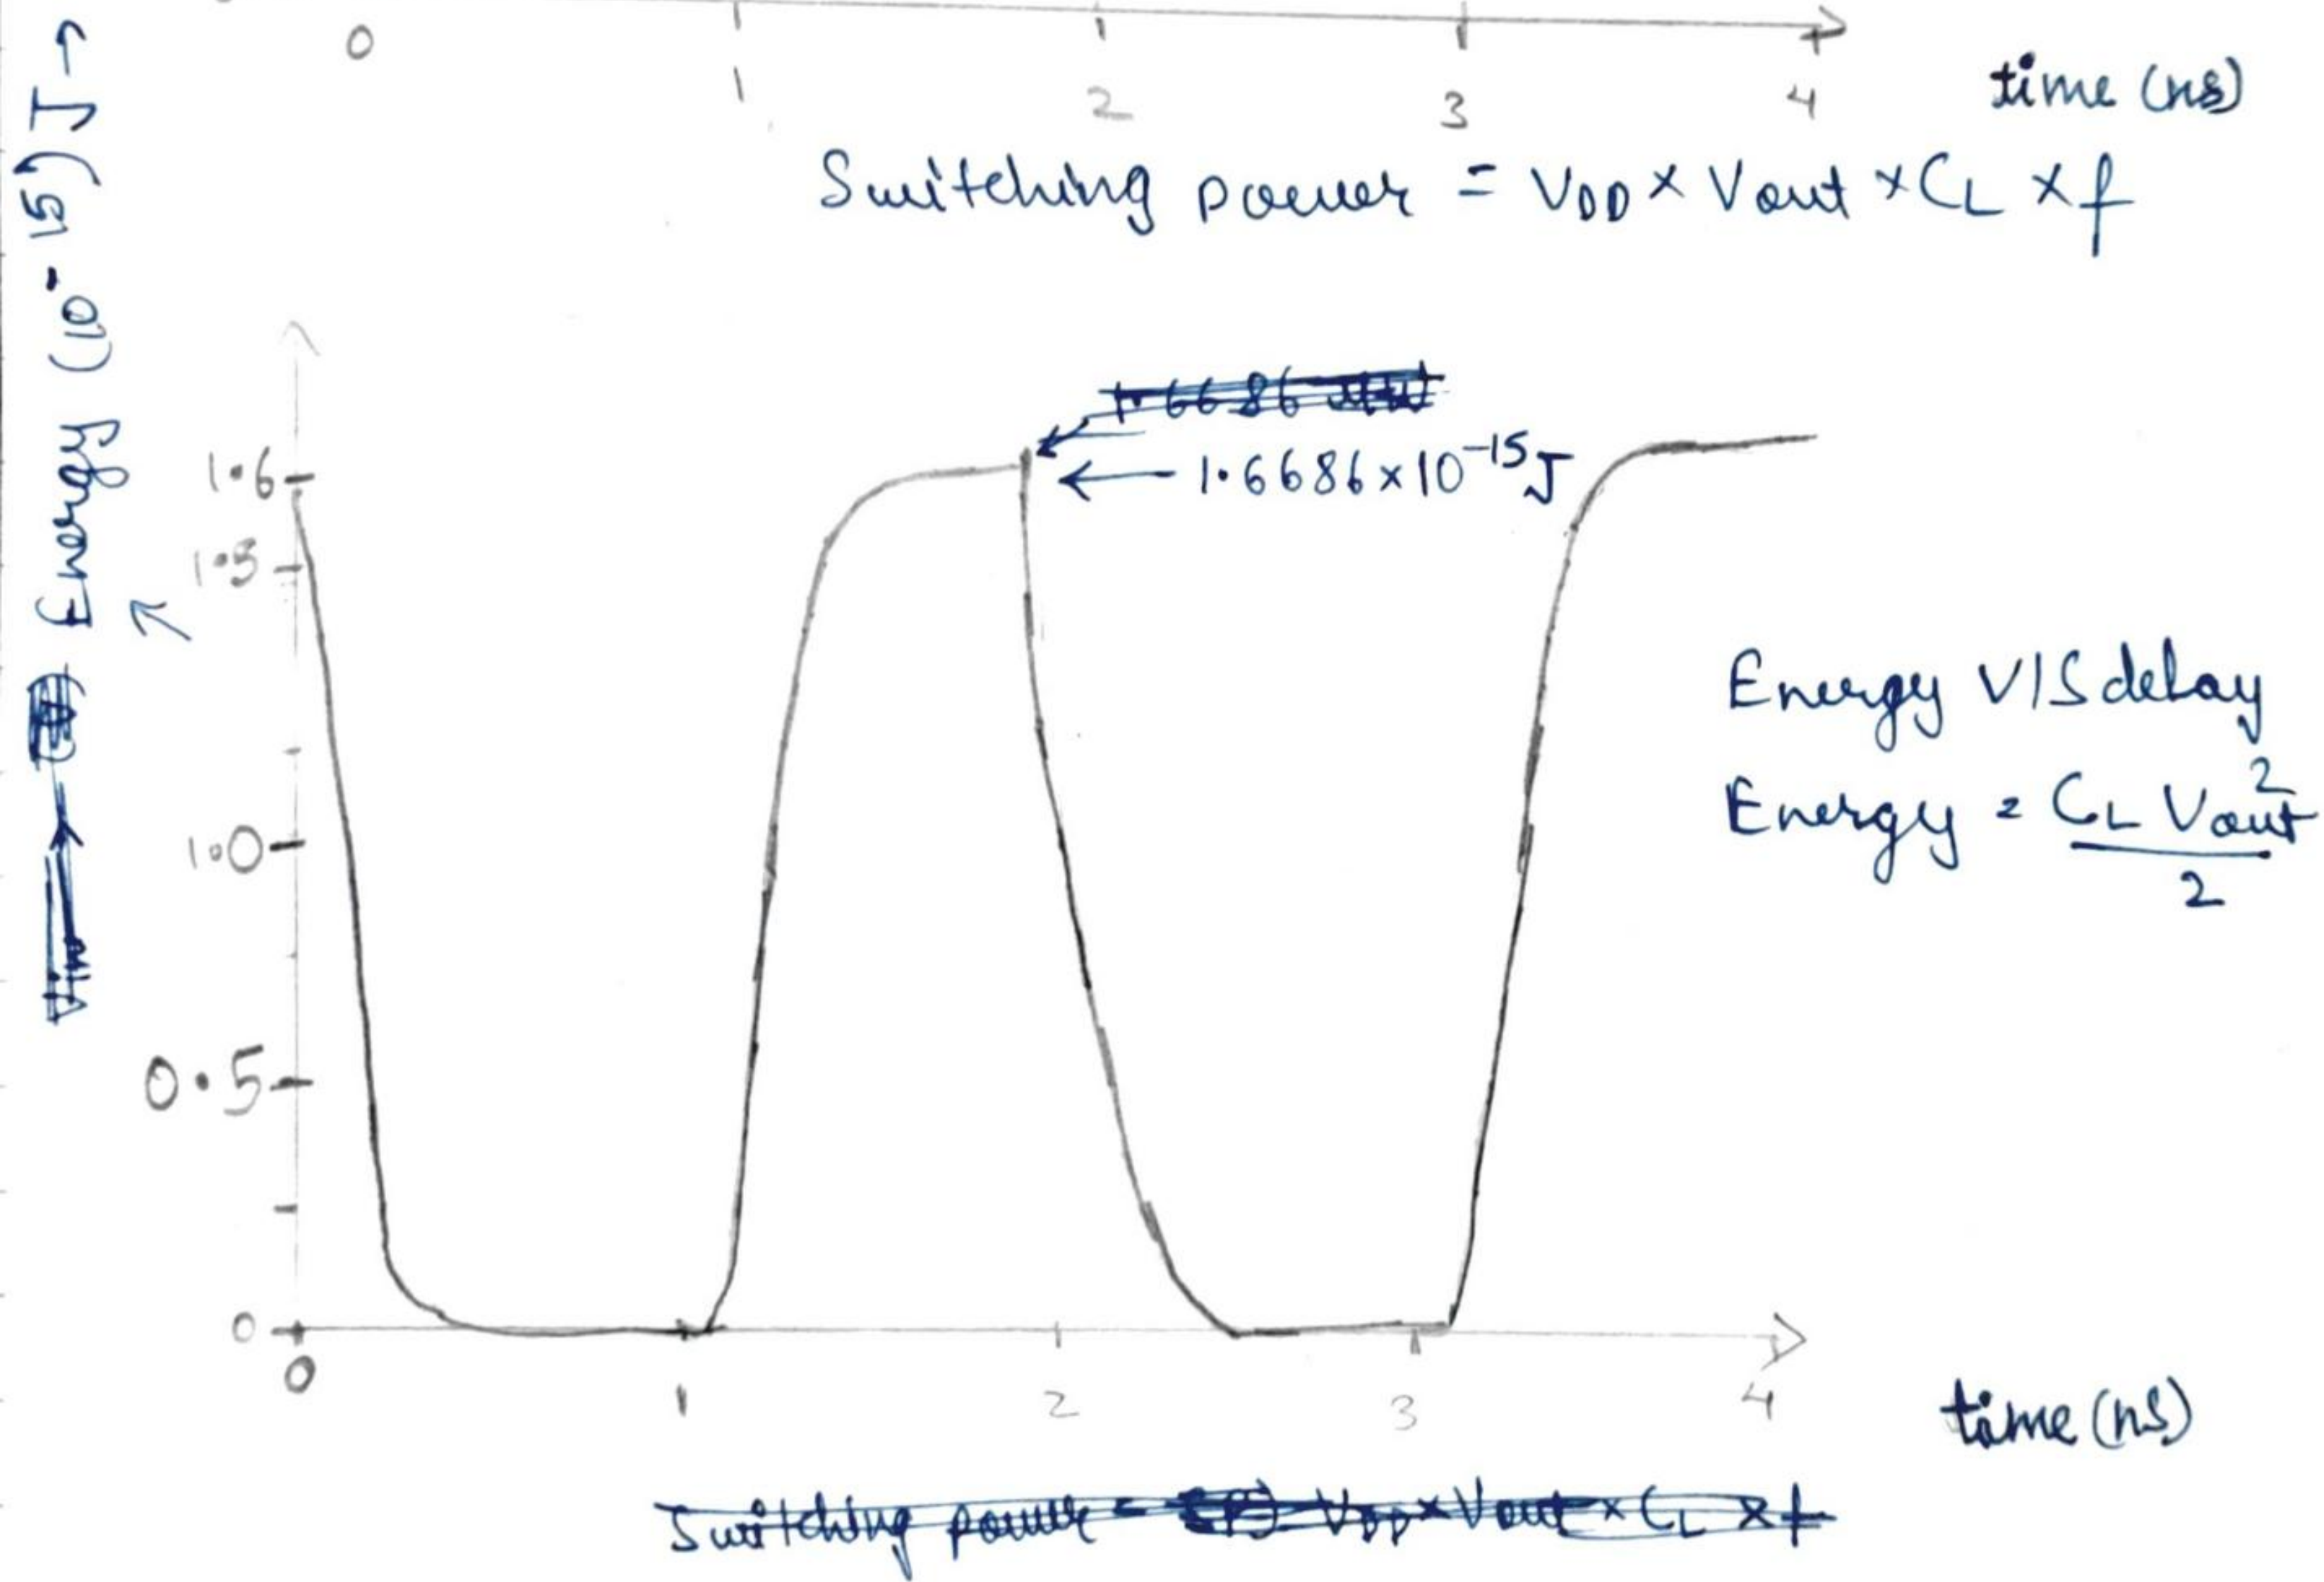 0 1 2 3 4 time (ns)
Switching power = VDD × Vout × CL × f
Energy (10^-15) J →
1.6686
← 1.6686×10^-15 J
1.6
1.5
1.0
0.5
0
Energy V/S delay
Energy = CL Vout^2
2
0 1 2 3 4 time (ns)
Vin
Switching power = VDD × Vout × CL × f